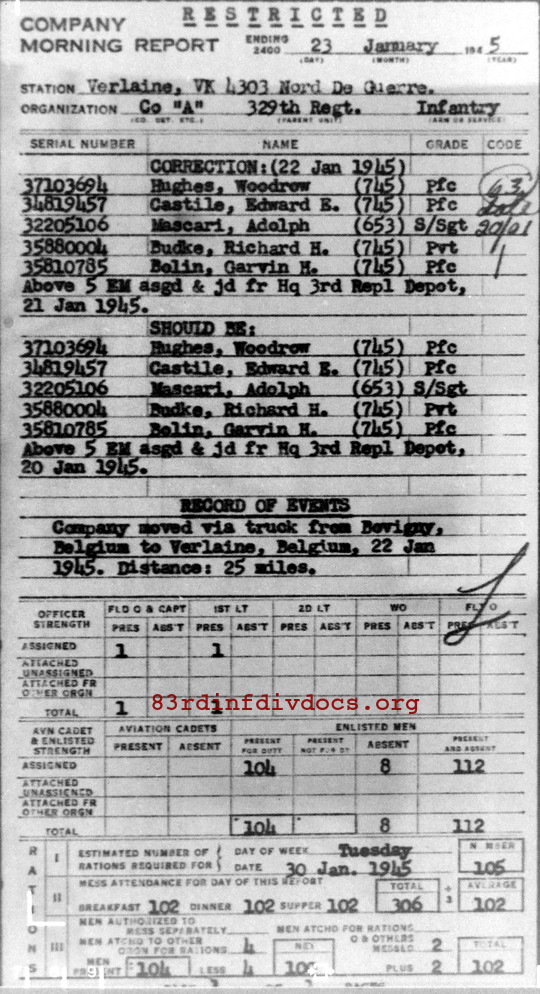 RESTRICTED
COMPANY
MORNING REPORT ENDING 2400 23 January 1945
(DAY) (MONTH) (YEAR)
STATION Verlaine, VK 4303 Nord De Guerre.
ORGANIZATION Co "A" 329th Regt. Infantry
(CO. DET. ETC.) (PARENT UNIT) (ARM OR SERVICE)
SERIAL NUMBER NAME GRADE CODE
CORRECTION:(22 Jan 1945)
37103694 Hughes, Woodrow (745) Pfc
34819457 Castile, Edward E. (745) Pfc
32205106 Mascari, Adolph (653) S/Sgt
35880004 Budke, Richard H. (745) Pvt
35810785 Bolin, Garvin H. (745) Pfc
Above 5 EM asgd & jd fr Hq 3rd Repl Depot,
21 Jan 1945.
SHOULD BE:
37103694 Hughes, Woodrow (745) Pfc
34819457 Castile, Edward E. (745) Pfc
32205106 Mascari, Adolph (653) S/Sgt
35880004 Budke, Richard H. (745) Pvt
35810785 Bolin, Garvin H. (745) Pfc
Above 5 EM asgd & jd fr Hq 3rd Repl Depot,
20 Jan 1945.
RECORD OF EVENTS
Company moved via truck from Bovigny,
Belgium to Verlaine, Belgium, 22 Jan
1945. Distance: 25 miles.
OFFICER STRENGTH FLD O & CAPT 1ST LT 2D LT WO FLT O
PRES ABS'T PRES ABS'T PRES ABS'T PRES ABS'T PRES ABS'T
ASSIGNED 1 1
ATTACHED UNASSIGNED
ATTACHED FR OTHER ORGN
TOTAL 1 1
83rdinfdivdocs.org
AVN CADET & ENLISTED STRENGTH AVIATION CADETS ENLISTED MEN
PRESENT ABSENT PRESENT FOR DUTY PRESENT NOT FOR DY ABSENT PRESENT AND ABSENT
ASSIGNED 104 8 112
ATTACHED UNASSIGNED
ATTACHED FR OTHER ORGN
TOTAL 104 8 112
RATIONS
I ESTIMATED NUMBER OF RATIONS REQUIRED FOR DAY OF WEEK Tuesday NUMBER
DATE 30 Jan. 1945 105
II MESS ATTENDANCE FOR DAY OF THIS REPORT TOTAL ÷ 3 AVERAGE
BREAKFAST 102 DINNER 102 SUPPER 102 306 102
III MEN AUTHORIZED TO MESS SEPARATELY MEN ATCHD FOR RATIONS
MEN ATCHD TO OTHER ORGN FOR RATIONS 4 NET O & OTHERS MESSED 2 TOTAL
MEN PRESENT 104 LESS 4 100 PLUS 2 102